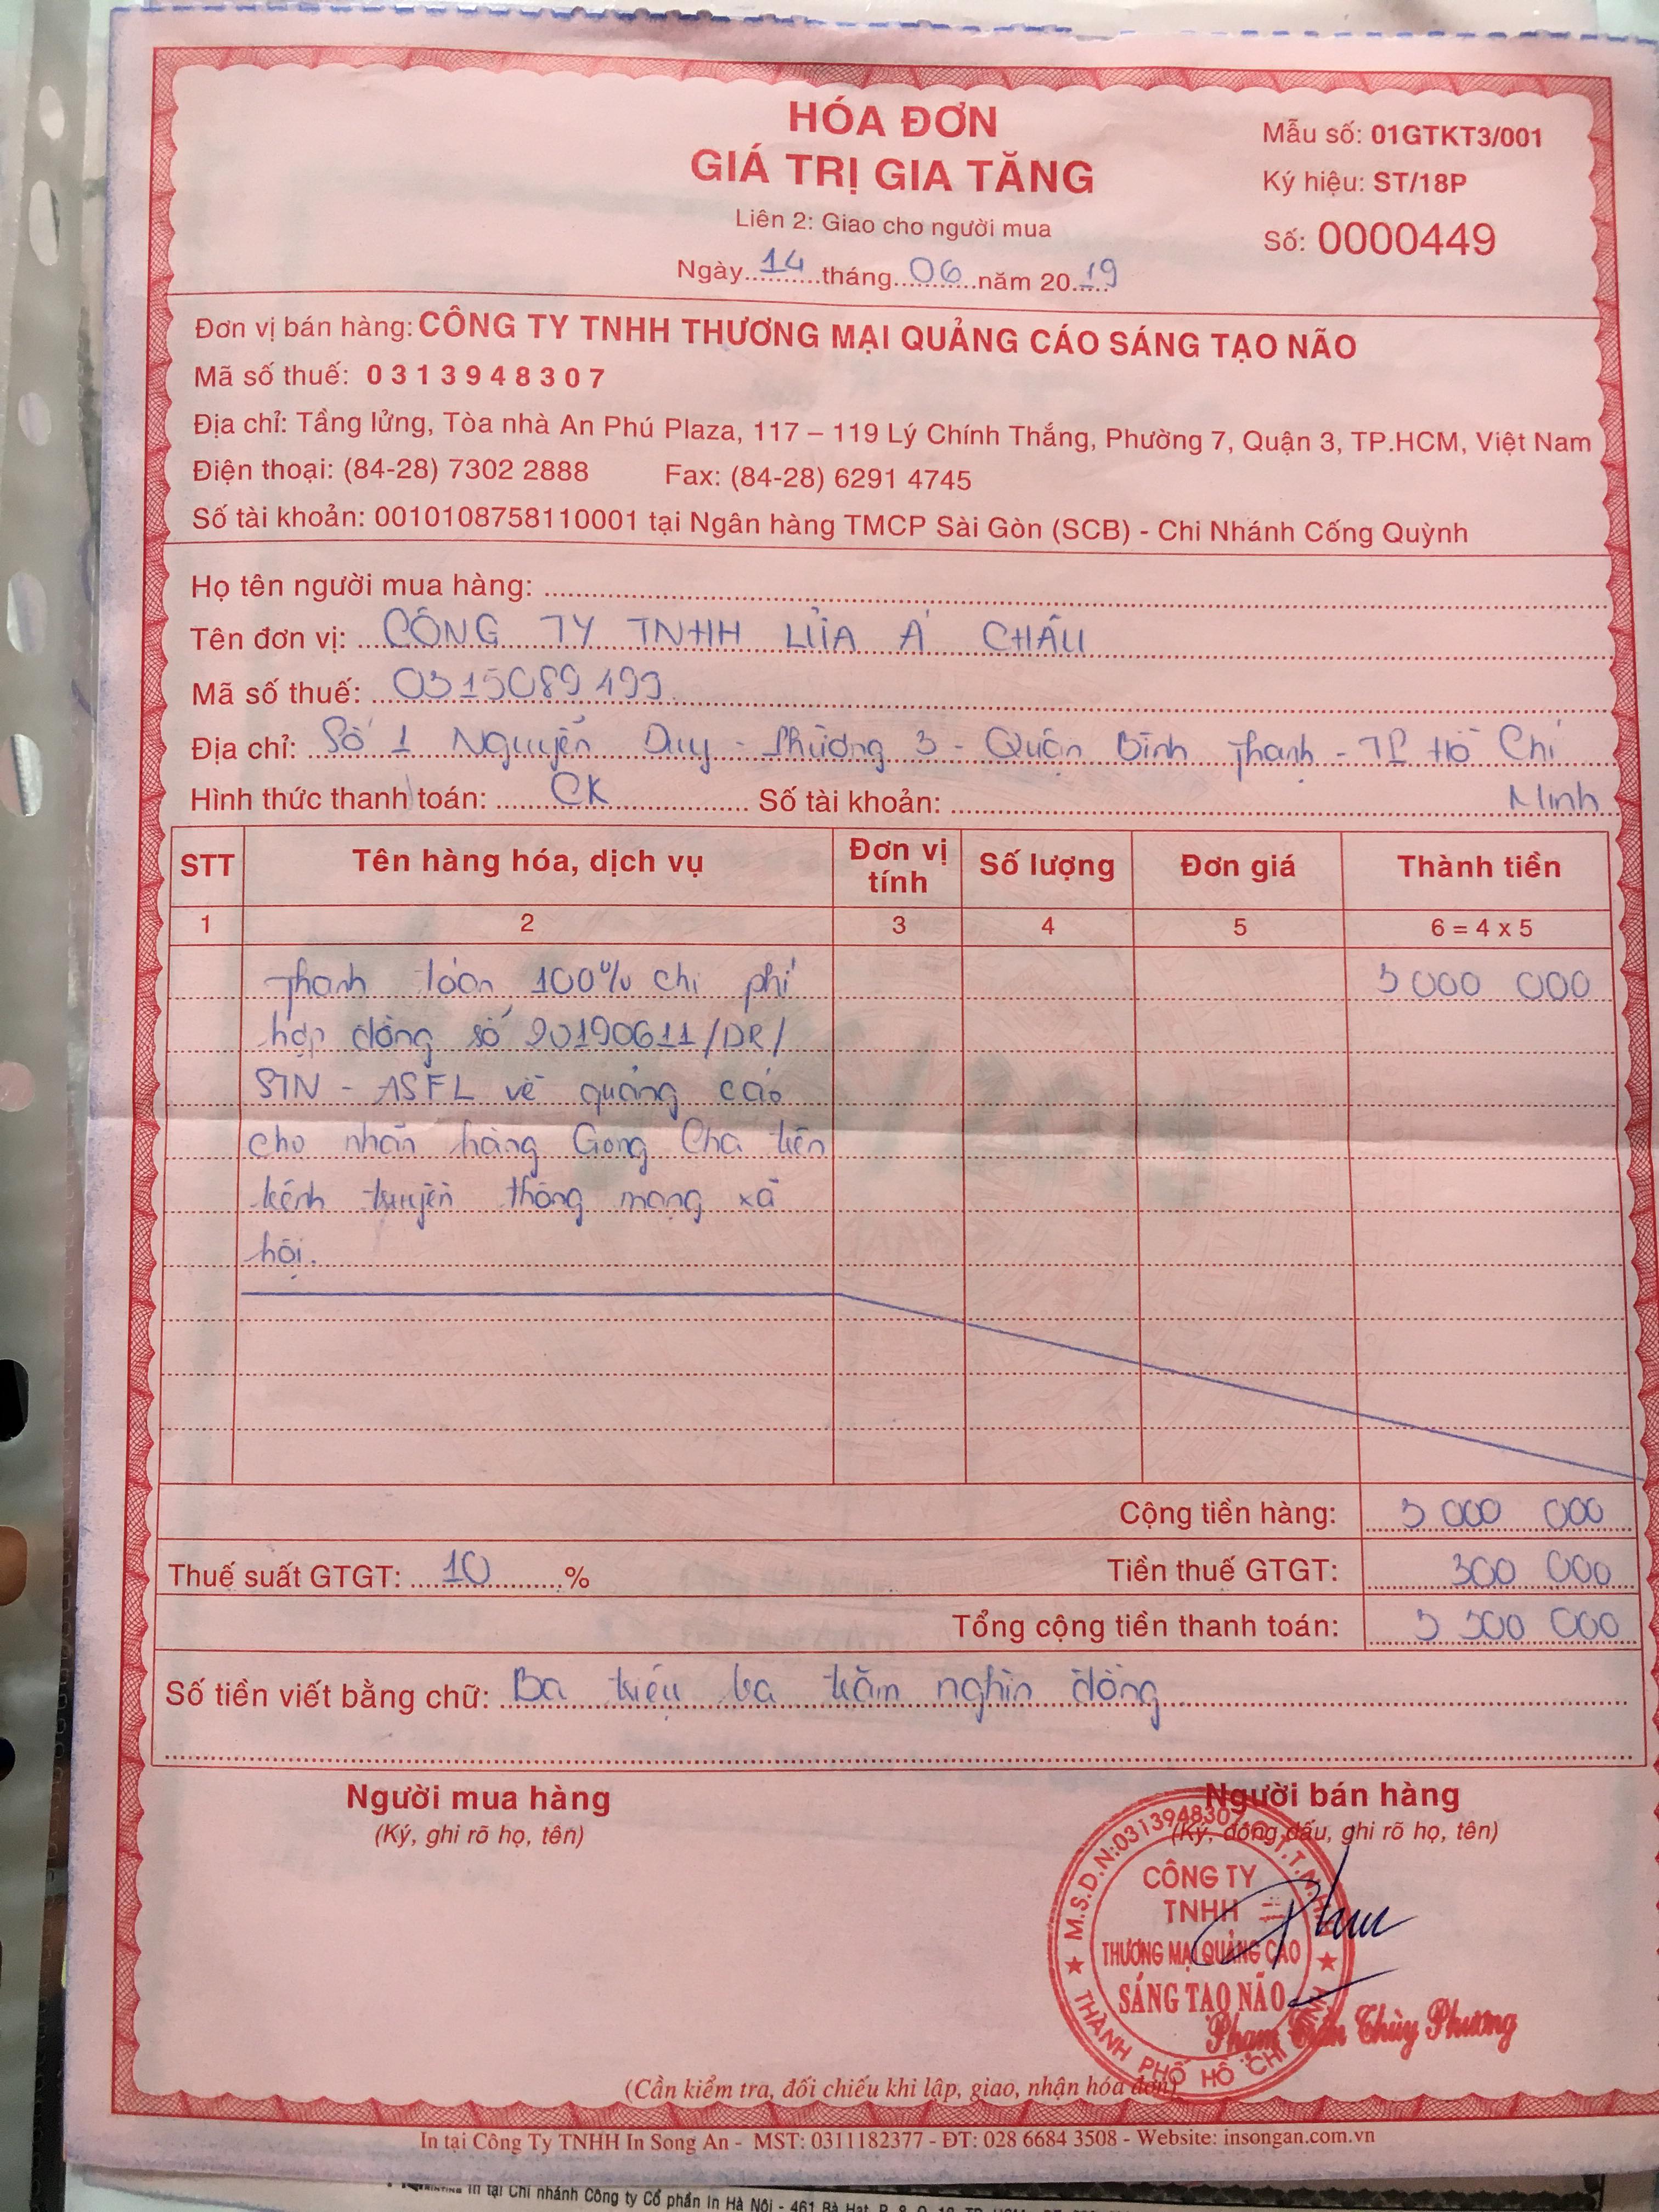 HÓA ĐƠN
GIÁ TRỊ GIA TĂNG
Liên 2: Giao cho người mua
Ngày 14 tháng 06 năm 20 19
Mẫu số: 01GTKT3/001
Ký hiệu: ST/18P
Số: 0000449
Đơn vị bán hàng: CÔNG TY TNHH THƯƠNG MẠI QUẢNG CÁO SÁNG TẠO NÃO
Mã số thuế: 0 3 1 3 9 4 8 3 0 7
Địa chỉ: Tầng lửng, Tòa nhà An Phú Plaza, 117 – 119 Lý Chính Thắng, Phường 7, Quận 3, TP.HCM, Việt Nam
Điện thoại: (84-28) 7302 2888 Fax: (84-28) 6291 4745
Số tài khoản: 0010108758110001 tại Ngân hàng TMCP Sài Gòn (SCB) - Chi Nhánh Cống Quỳnh
Họ tên người mua hàng:
Tên đơn vị: CÔNG TY TNHH LỬA Á CHÂU
Mã số thuế: 0315089499
Địa chỉ: Số 1 Nguyễn Duy - Phường 3 - Quận Bình Thạnh - TP Hồ Chí
Minh
Hình thức thanh toán: CK Số tài khoản:
STT Tên hàng hóa, dịch vụ Đơn vị tính Số lượng Đơn giá Thành tiền
1 2 3 4 5 6 = 4 x 5
Thanh toán 100% chi phí 3 000 000
hợp đồng số 20190611/DR/
STN - ASFL về quảng cáo
cho nhãn hàng Gong Cha trên
kênh truyền thông mạng xã
hội.
Cộng tiền hàng: 3 000 000
Thuế suất GTGT: 10 % Tiền thuế GTGT: 300 000
Tổng cộng tiền thanh toán: 3 300 000
Số tiền viết bằng chữ: Ba triệu ba trăm nghìn đồng
Người mua hàng
(Ký, ghi rõ họ, tên)
Người bán hàng
(Ký, đóng dấu, ghi rõ họ, tên)
M.S.D.N:0313948307
CÔNG TY
TNHH
THƯƠNG MẠI QUẢNG CÁO
SÁNG TẠO NÃO
THÀNH PHỐ HỒ CHÍ MINH
Phạm Trần Thùy Phương
(Cần kiểm tra, đối chiếu khi lập, giao, nhận hóa đơn)
In tại Công Ty TNHH In Song An - MST: 0311182377 - ĐT: 028 6684 3508 - Website: insongan.com.vn
In tại Chi nhánh Công ty Cổ phần In Hà Nội - 461 Bà Hạt